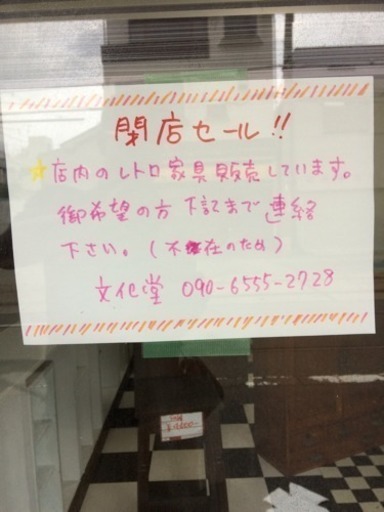 閉店セール!!
☆店内のレトロ家具販売しています。
御希望の方 下記まで連絡
下さい。(不在のため)
文化堂 090-6555-2728